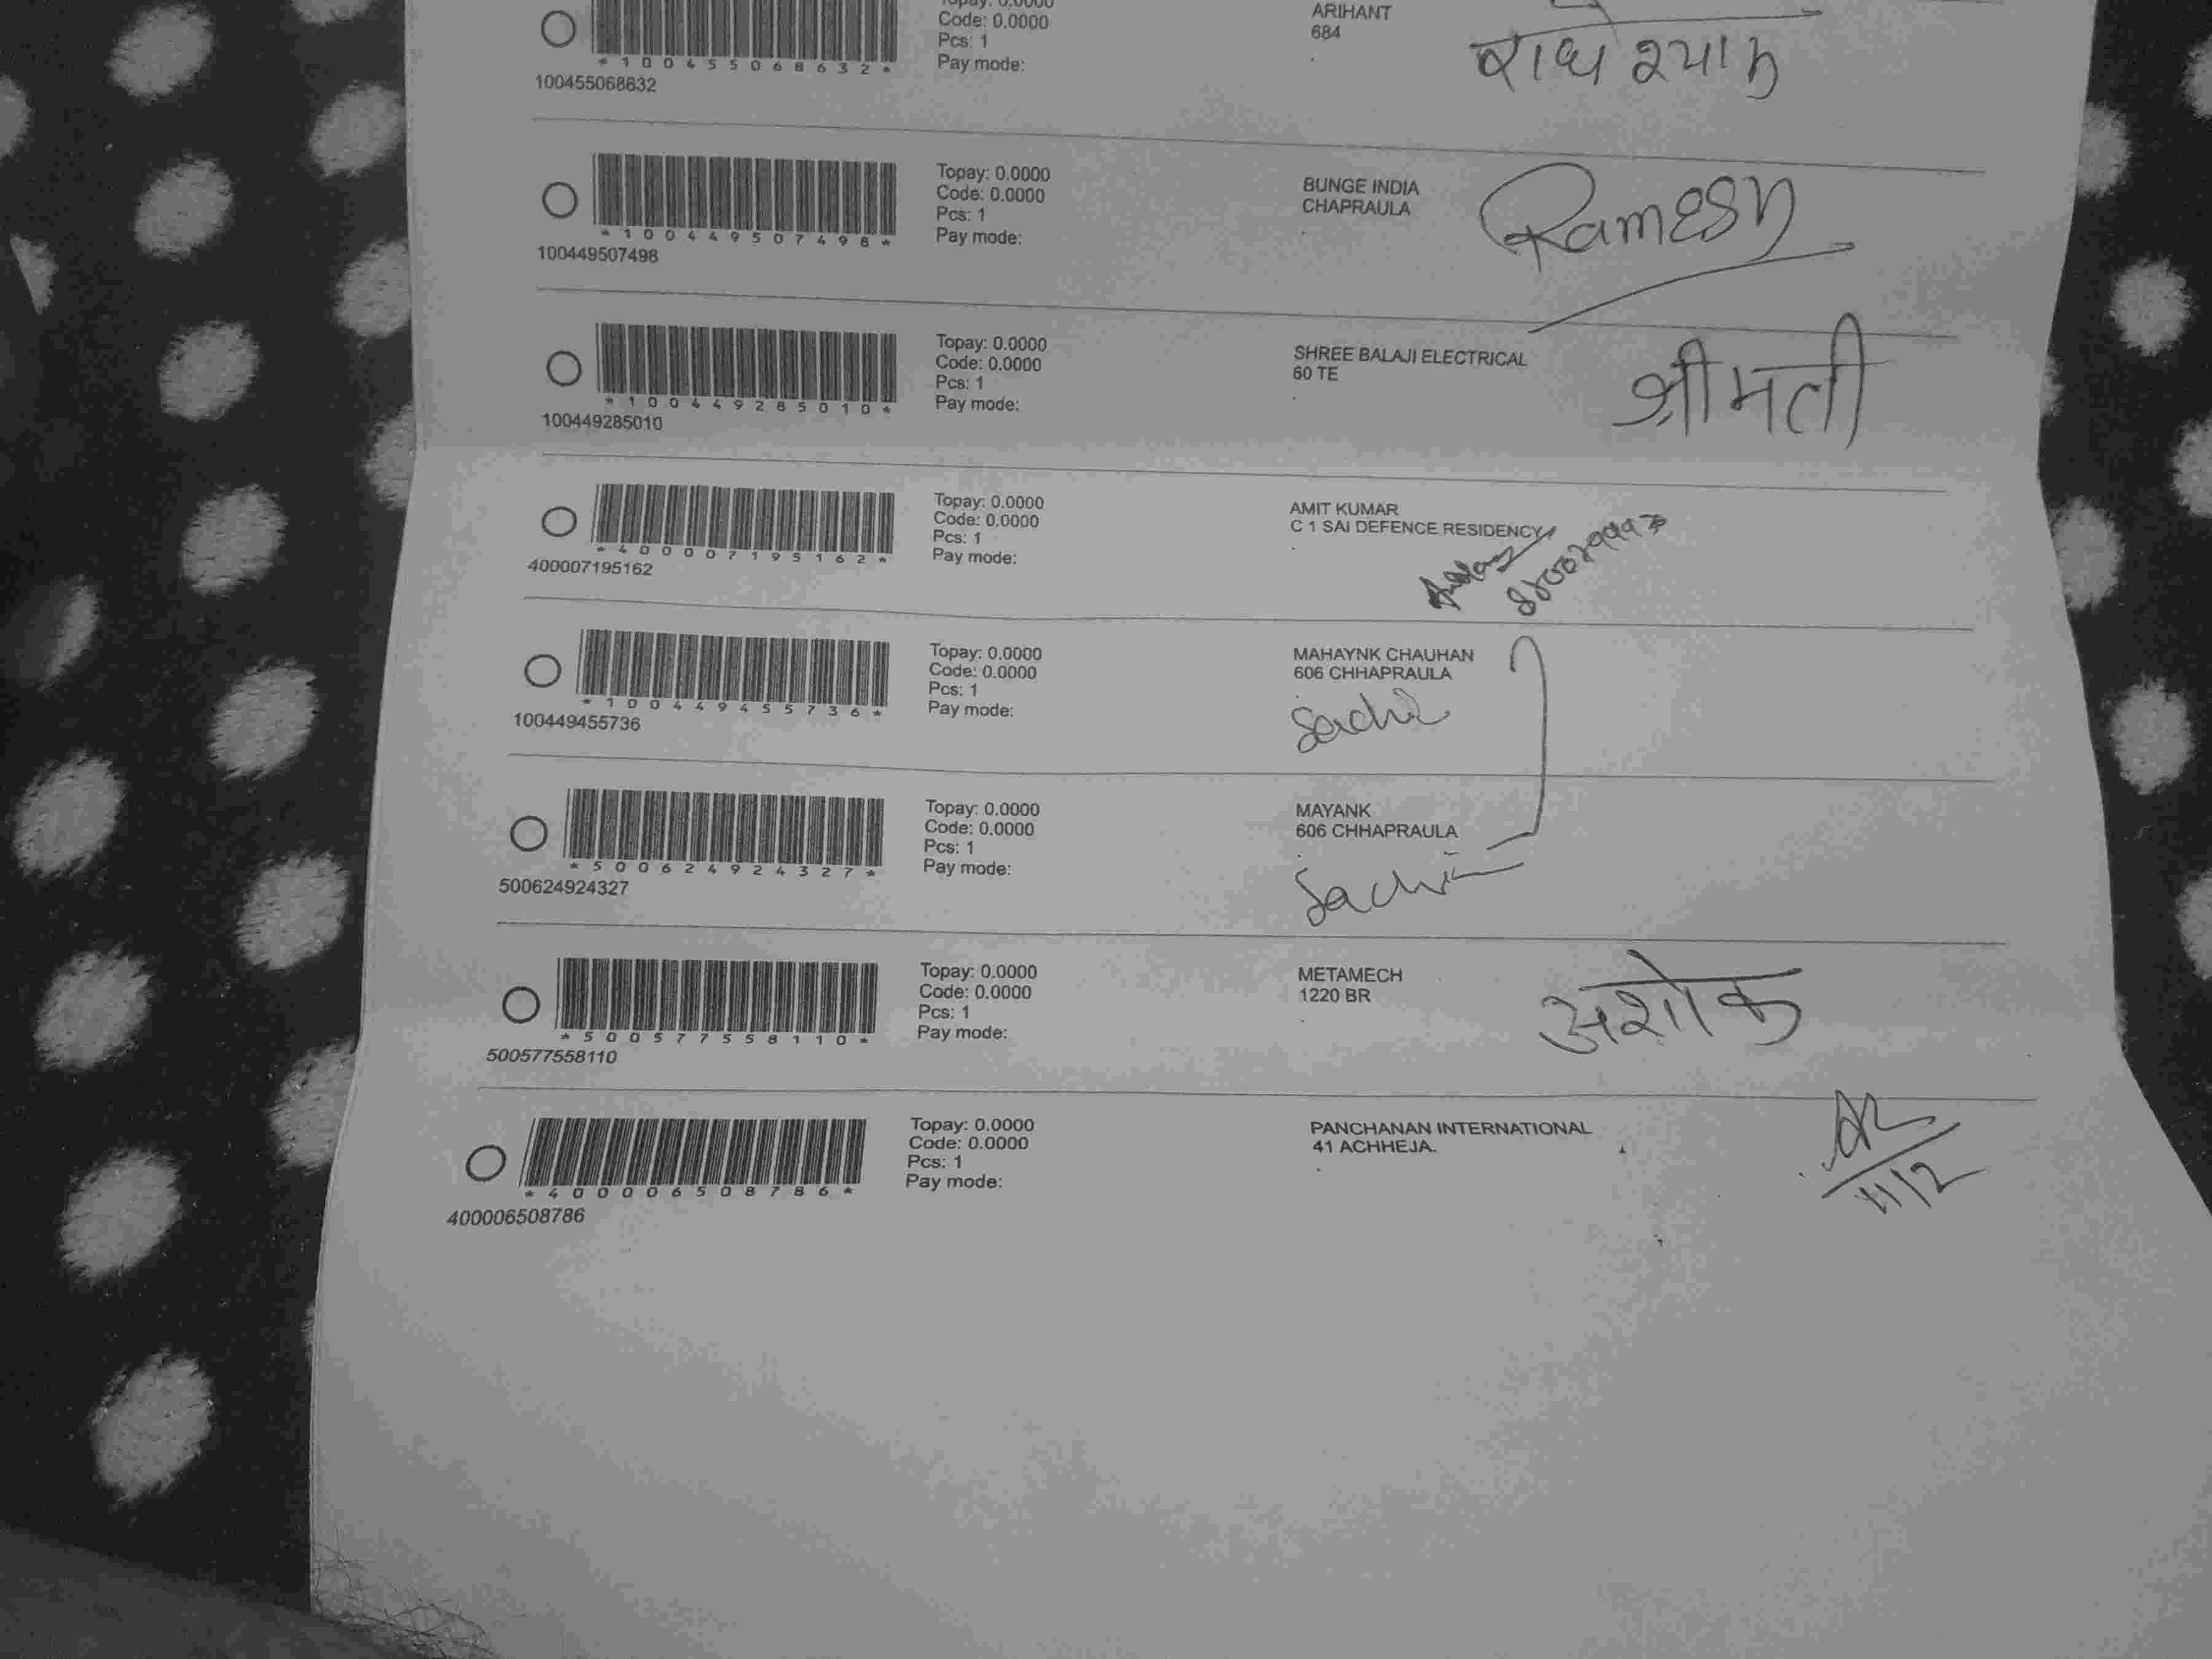 Topay: 0.0000
Code: 0.0000
Pcs: 1
Pay mode:
*100455068632*
100455068632
ARIHANT
684
राधे श्याम
Topay: 0.0000
Code: 0.0000
Pcs: 1
Pay mode:
*100449507498*
100449507498
BUNGE INDIA
CHAPRAULA
Ramesh
Topay: 0.0000
Code: 0.0000
Pcs: 1
Pay mode:
*100449285010*
100449285010
SHREE BALAJI ELECTRICAL
60 TE
श्रीमती
Topay: 0.0000
Code: 0.0000
Pcs: 1
Pay mode:
*400007195162*
400007195162
AMIT KUMAR
C 1 SAI DEFENCE RESIDENCY
Topay: 0.0000
Code: 0.0000
Pcs: 1
Pay mode:
*100449455736*
100449455736
MAHAYNK CHAUHAN
606 CHHAPRAULA
Sachin
Topay: 0.0000
Code: 0.0000
Pcs: 1
Pay mode:
*500624924327*
500624924327
MAYANK
606 CHHAPRAULA
Sachin
Topay: 0.0000
Code: 0.0000
Pcs: 1
Pay mode:
*500577558110*
500577558110
METAMECH
1220 BR
अशोक
Topay: 0.0000
Code: 0.0000
Pcs: 1
Pay mode:
*400006508786*
400006508786
PANCHANAN INTERNATIONAL
41 ACHHEJA.
11/12